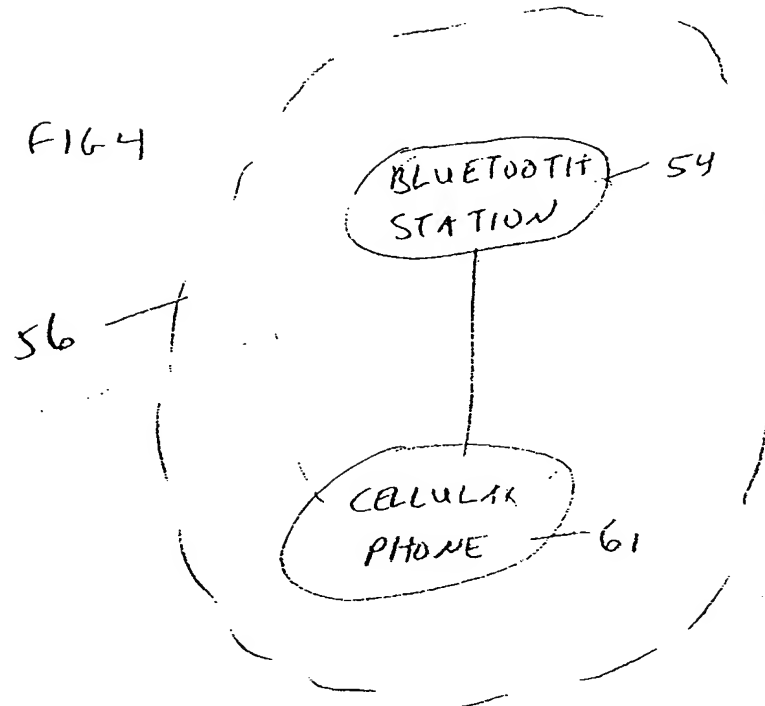 FIG 4
BLUETOOTH
STATION
54
56
CELLULAR
PHONE
61